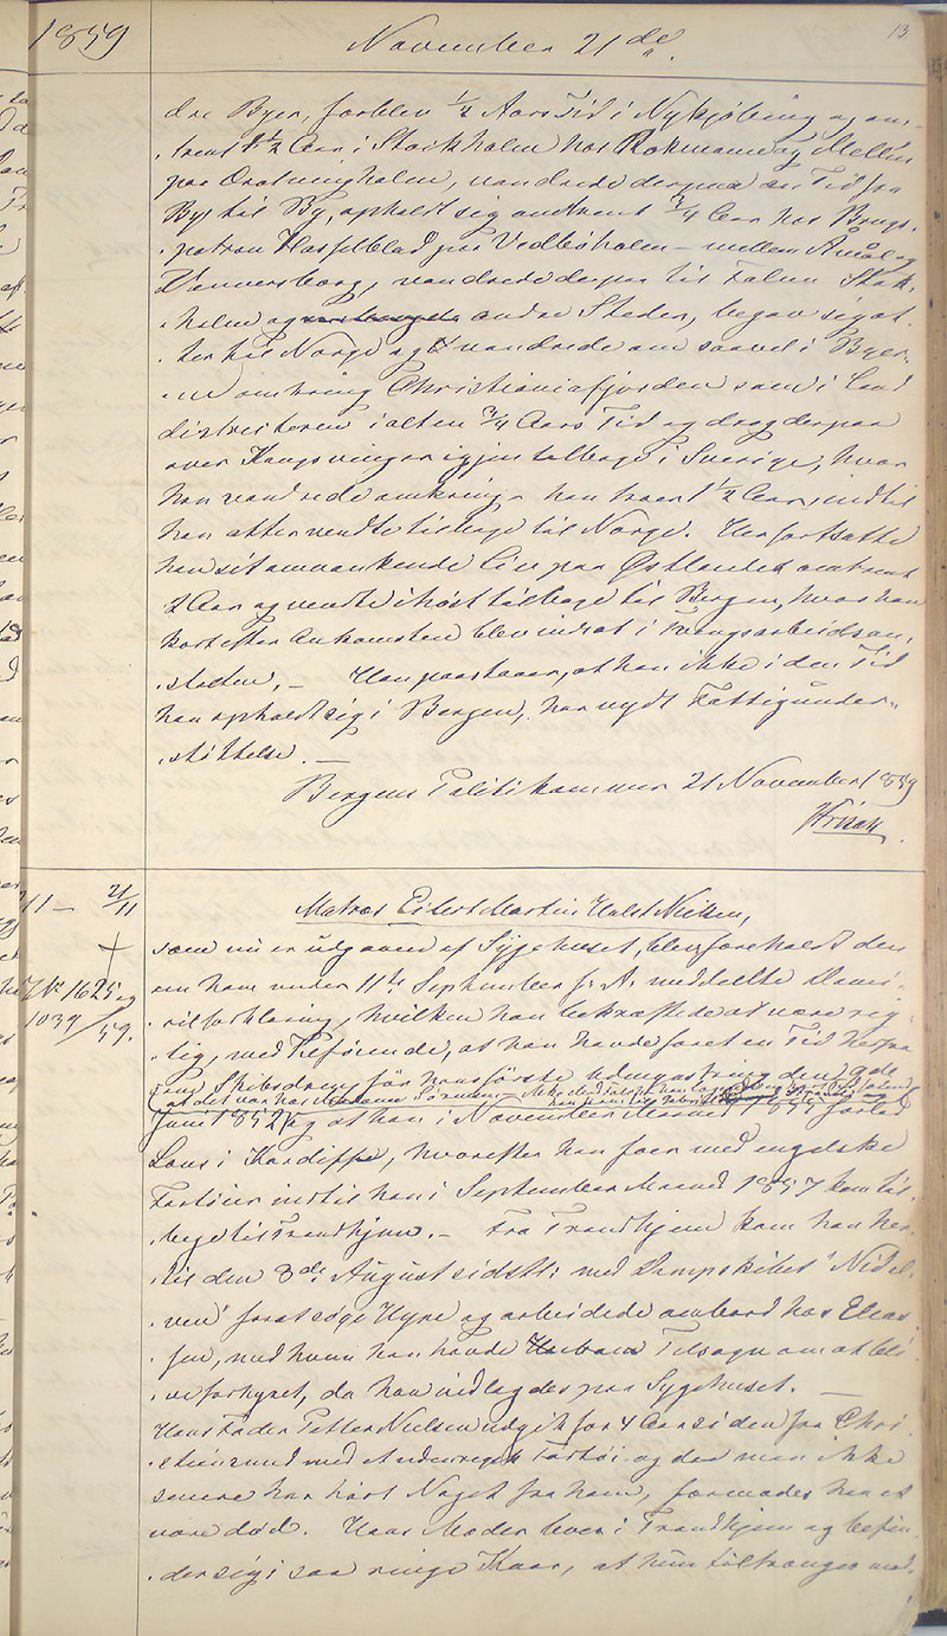 1859
November 21de.
13
dre Byer, forblev 1/2 Aars Tid i Nykjøbing og om-
trent 1 1/2 Aar i Stockholm hos Rokmand og Mellin
paa Drotningholm, vandrede derpaa en Tid fra
By til By, opholdt sig omtrent 3/4 Aar hos Brugs-
patron Hasselblad paa Vedbøholm - mellem Åmål og
Vennersborg, vandrede derpaa til Falun Stok-
holm og andre Steder, begav sig at-
ter til Norge og vandrede om saavel i Byer-
ne omkring Christianiafjorden som i Land
districterne i alt en 3/4 Aars Tid og drog derpaa
over Kongsvinger igjen tilbage i Sverige, hvor
han vandrede omkring han 1/2 Aar, indtil
han atter vendte tilbage til Norge. Her fortsatte
han sit omvankende Liv paa Østlandet omtrent
2 Aar og vendte i høst tilbage til Bergen, hvor han
kort efter Ankomsten blev indsat i Tvangsarbeidsan-
stalten. - Han paastaaer, at han ikke i den Tid
han opholdt sig i Bergen, har nydt Fattigunder-
støttelse. -
Bergens Politikammer 21 November 1859
11 - 21/11
Matros Eilert Martin Holst Nielsen,
som nu er udgaaen af Sygehuset, blev foreholdt den
JN 1625 og
1039/59.
om ham under 11te September f. A. meddeelte Domi-
cilforklaring, hvilken han bekræftede at være rig-
tig, med Tilføiende, at han havde faret en Tid herfra
som Skibsdreng før hans første Udenrigs den 9de
Juni 1852 og at han i November Maaned forlod
Lous i Kardiffe, hvorefter han foer med engelske
Fartøier indtil han i September Maaned 1857 kom til-
bage til Trondhjem. - Fra Trondhjem kom han her-
til den 8de August sidstl: med Dampskibet "Nidel-
ven" for at søge Hyre og arbeidede ombord hos Elias-
sen, med hvem han havde Tilsagn om at bli-
ve forhyret, da han indlagdes paa Sygehuset. -
Hans Fader Petter Nielsen udgik for 4 Aar siden fra Chri-
stiansund med et udenrigsk Fartøi og da man ikke
senere har hørt Noget fra ham, formodes han at
være død. Hans Moder lever i Trondhjem og befin-
der sig i saa ringe Kaar, at hun tiltrænger